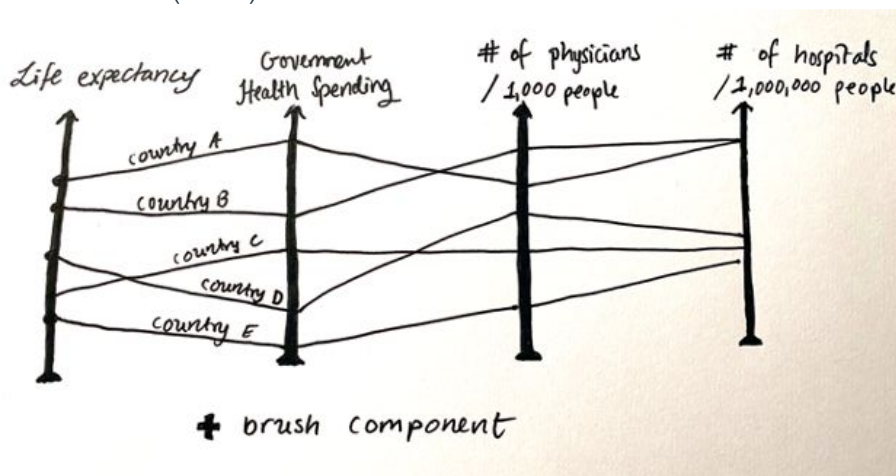 Life expectancy
Government
Health Spending
# of physicians
/ 1,000 people
# of hospitals
/ 1,000,000 people
country A
country B
country C
country D
country E
+ brush component